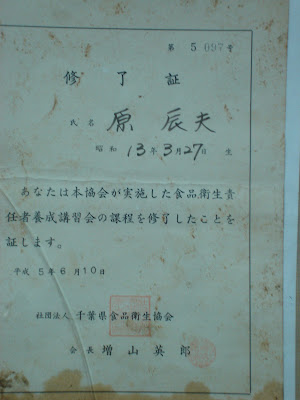 第 5097号
修了証
氏名 原 辰夫
昭和 13年3月27日 生
あなたは本協会が実施した食品衛生責
任者養成講習会の課程を修了したことを
証します。
平成 5年6月10日
社団法人 千葉県食品衛生協会
会長 増山英郎